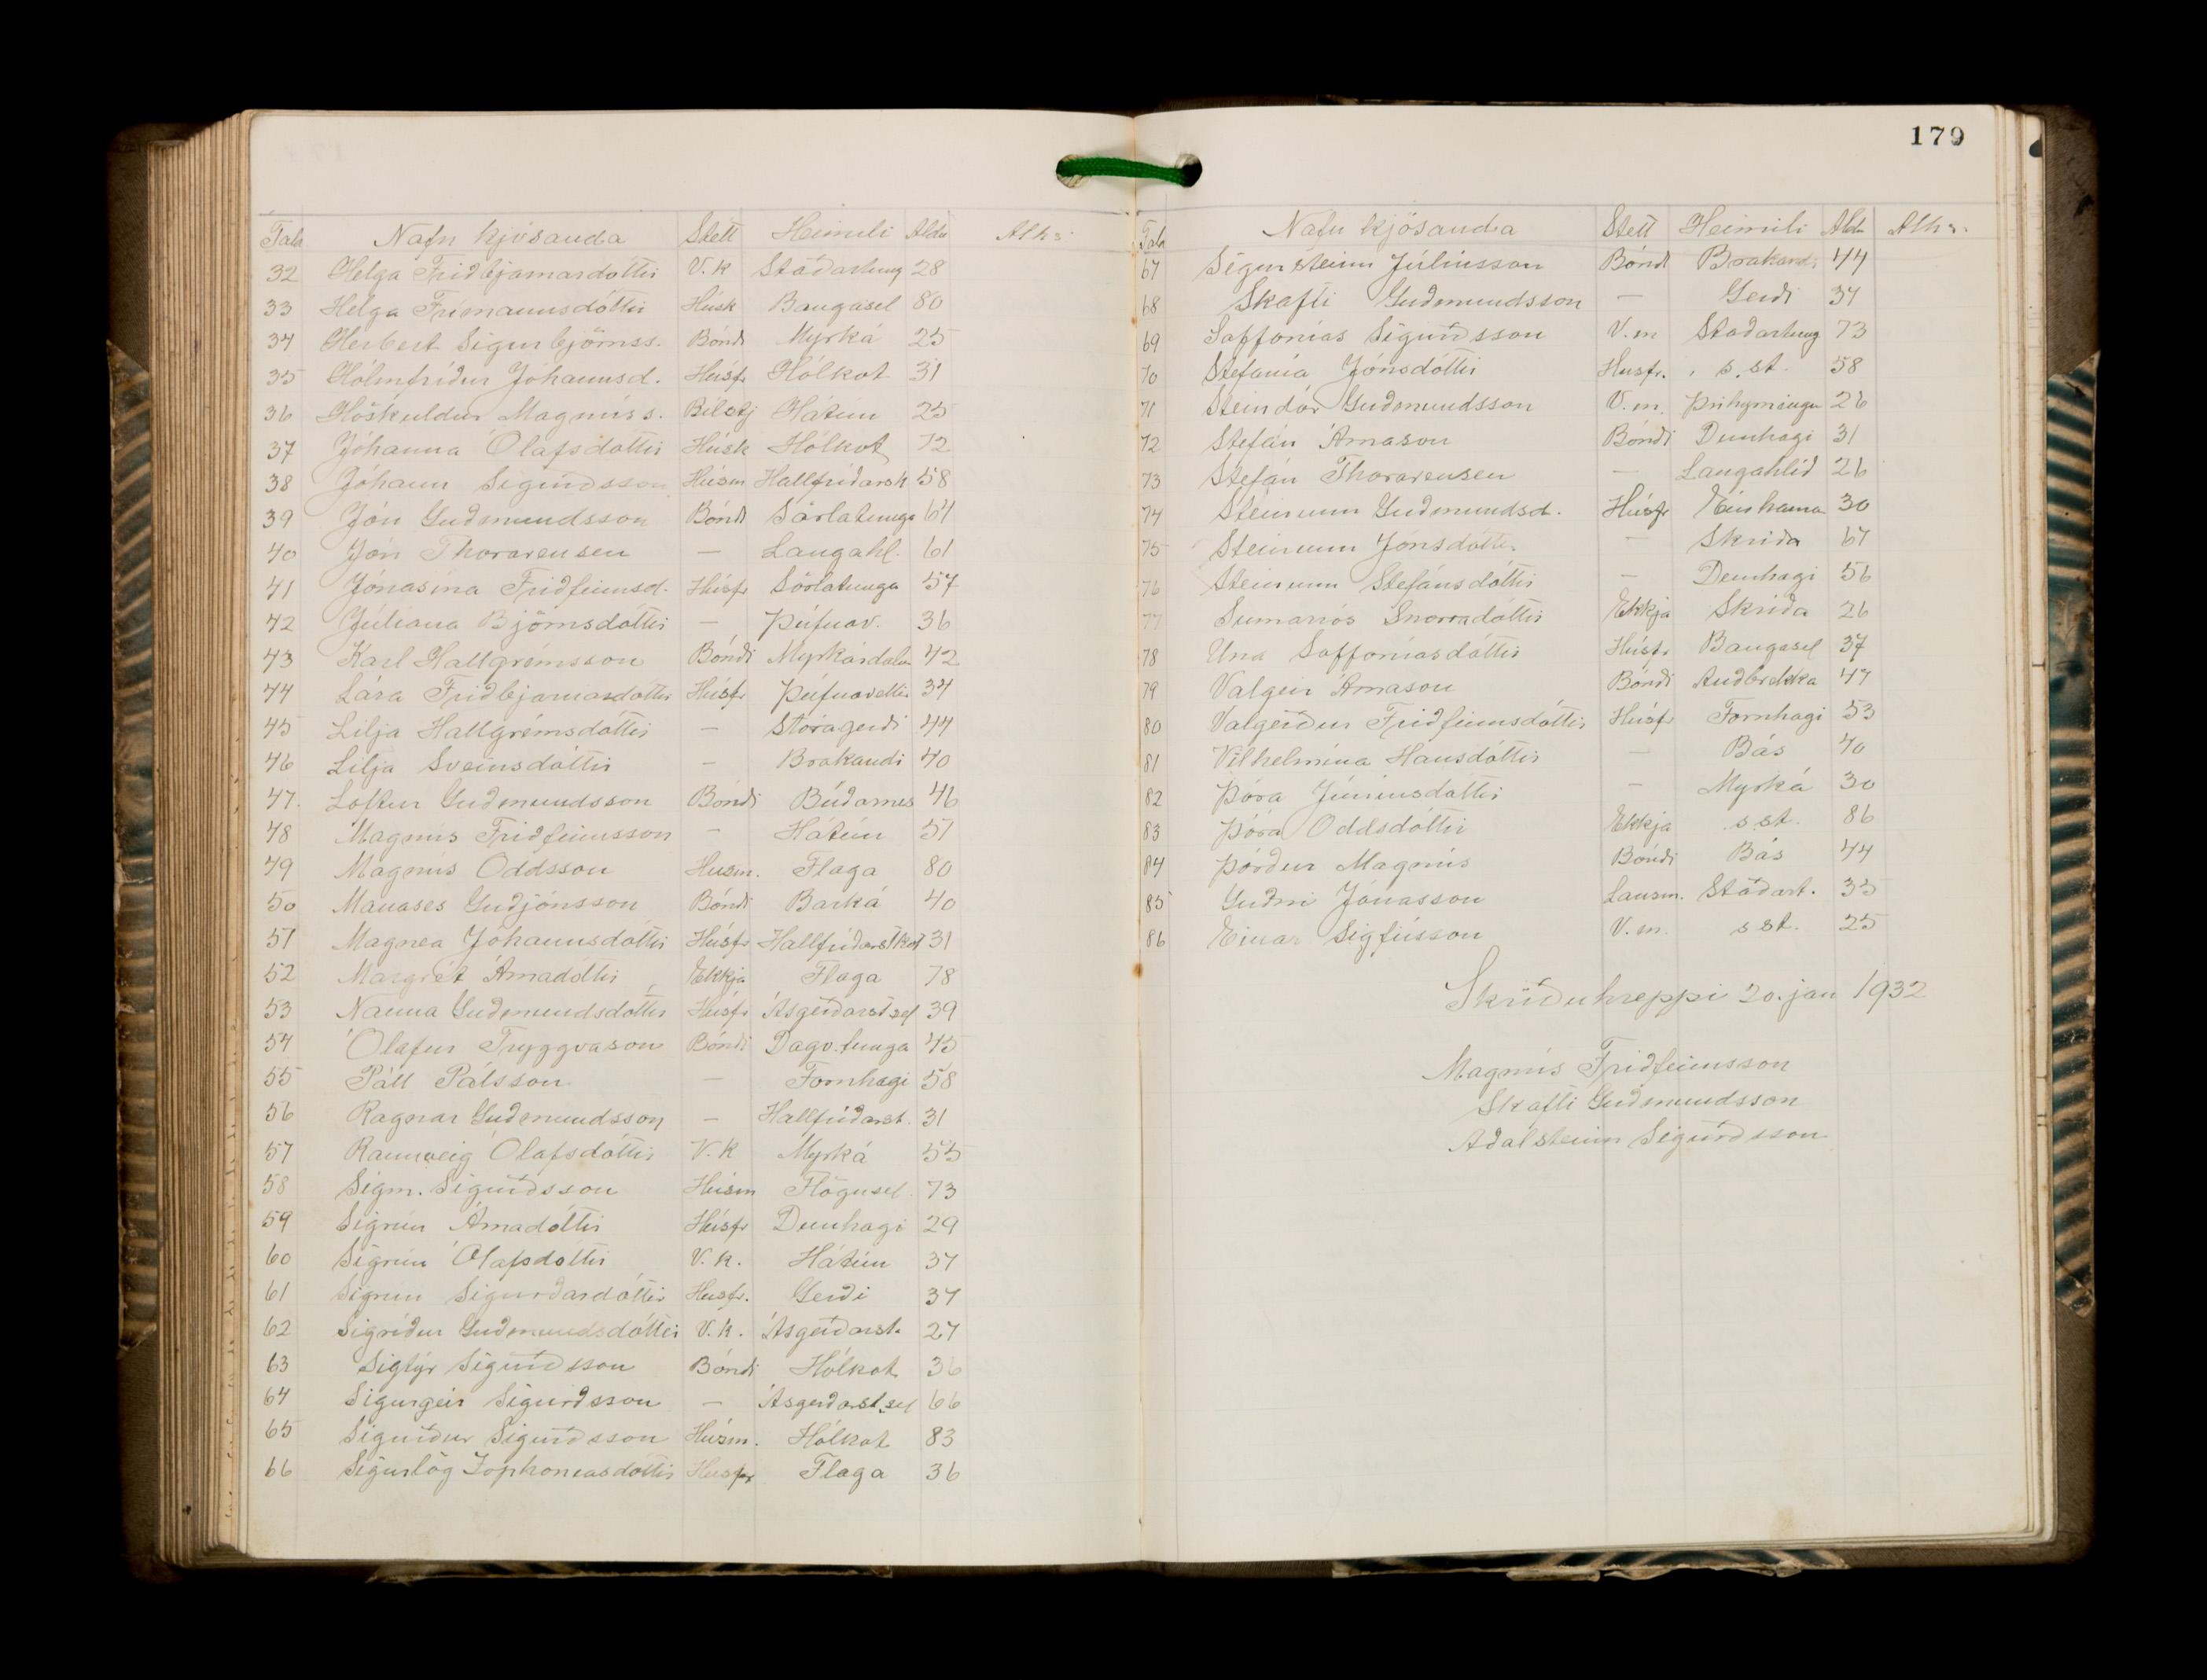 179
Tala Nafn kjósanda Stétt Heimili Aldur Aths.
32 Helga Friðbjarnardóttir V.k Staðartung 28
33 Helga Frímannsdóttir Húsk Baugasel 80
34 Herbert Sigurbjörnss. Bóndi Myrká 25
35 Hólmfríður Jóhannsd. Húsfr Hólkot 31
36 Höskuldur Magnúss. Bílstj Hátún 25
37 Jóhanna Ólafsdóttir Húsk Hólkot 72
38 Jóhann Sigurðsson Húsm Hallfríðarsk 58
39 Jón Guðmundsson Bóndi Sörlatunga 64
40 Jón Thorarensen — Langahl. 61
41 Jónasína Friðfinnsd. Húsfr Sörlatunga 57
42 Júlíana Björnsdóttir — Þúfnav. 36
43 Karl Hallgrímsson Bóndi Myrkárdalur 42
44 Lára Friðbjarnardóttir Húsfr Þúfnavellir 34
45 Lilja Hallgrímsdóttir — Stóragerði 44
46 Lilja Sveinsdóttir — Brakandi 40
47. Loftur Guðmundsson Bóndi Búðarnes 46
48 Magnús Friðfinnsson — Hátún 51
49 Magnús Oddsson Husm. Flaga 80
50 Manases Guðjónsson Bóndi Barká 40
51 Magnea Jóhannsdóttir Húsfr Hallfríðarstkot 31
52 Margrét Árnadóttir Ekkja Flaga 78
53 Nanna Guðmundsdóttir Húsfr Ásgerðarstsel 39
54 Ólafur Tryggvason Bóndi Dagv.tunga 45
55 Páll Pálsson — Fornhagi 58
56 Ragnar Guðmundsson — Hallfríðarst. 31
57 Rannveig Ólafsdóttir V.K Myrká 55
58 Sigm. Sigurðsson Húsm Flögusel 73
59 Sigrún Árnadóttir Húsfr Dunhagi 29
60 Sigrún Ólafsdóttir V.k. Hátún 37
61 Sigrún Sigurðardóttir Husfr. Gerði 37
62 Sigríður Guðmundsdóttir V.k. Ásgerðarst. 27
63 Sigtýr Sigurðsson Bóndi Hólkot 36
64 Sigurgeir Sigurðsson — Ásgerðarst.sel 66
65 Sigurður Sigurðsson Húsm. Hólkot 83
66 Sigurlög Zophoníasdóttir Husfr Flaga 36
Tala Nafn kjósanda Stétt Heimili Aldur Aths.
67 Sigursteinn Júlíusson Bóndi Brakandi 44
68 Skafti Guðmundsson — Gerði 37
69 Saffonías Sigurðsson V.m Staðartung 73
70 Stefanía Jónsdóttir Husfr. s.st. 58
71 Steindór Guðmundsson V.m. Þríhyrningur 26
72 Stefán Árnason Bóndi Dunhagi 31
73 Stefán Thorarensen — Langahlíð 26
74 Steinunn Guðmundsd. Húsfr Einhamar 30
75 Steinunn Jónsdóttir — Skriða 67
76 Steinunn Stefánsdóttir — Dunhagi 56
77 Sumarrós Snorradóttir Ekkja Skriða 26
78 Una Saffoníasdóttir Húsfr Baugasel 37
79 Valgeir Árnason Bóndi Auðbrekka 47
80 Valgerður Friðfinnsdóttir Húsfr Fornhagi 53
81 Vilhelmína Hansdóttir — Bás 40
82 Þóra Júníusdóttir — Myrká 30
83 Þóra Oddsdóttir Ekkja s.st. 86
84 Þórður Magnús Bóndi Bás 44
85 Guðni Jónasson Lausm. Staðart. 35
86 Einar Sigfússon V.m. s st. 25
Skriðuhreppi 20. jan 1932
Magnús Friðfinnsson
Skafti Guðmundsson
Aðalsteinn Sigurðsson